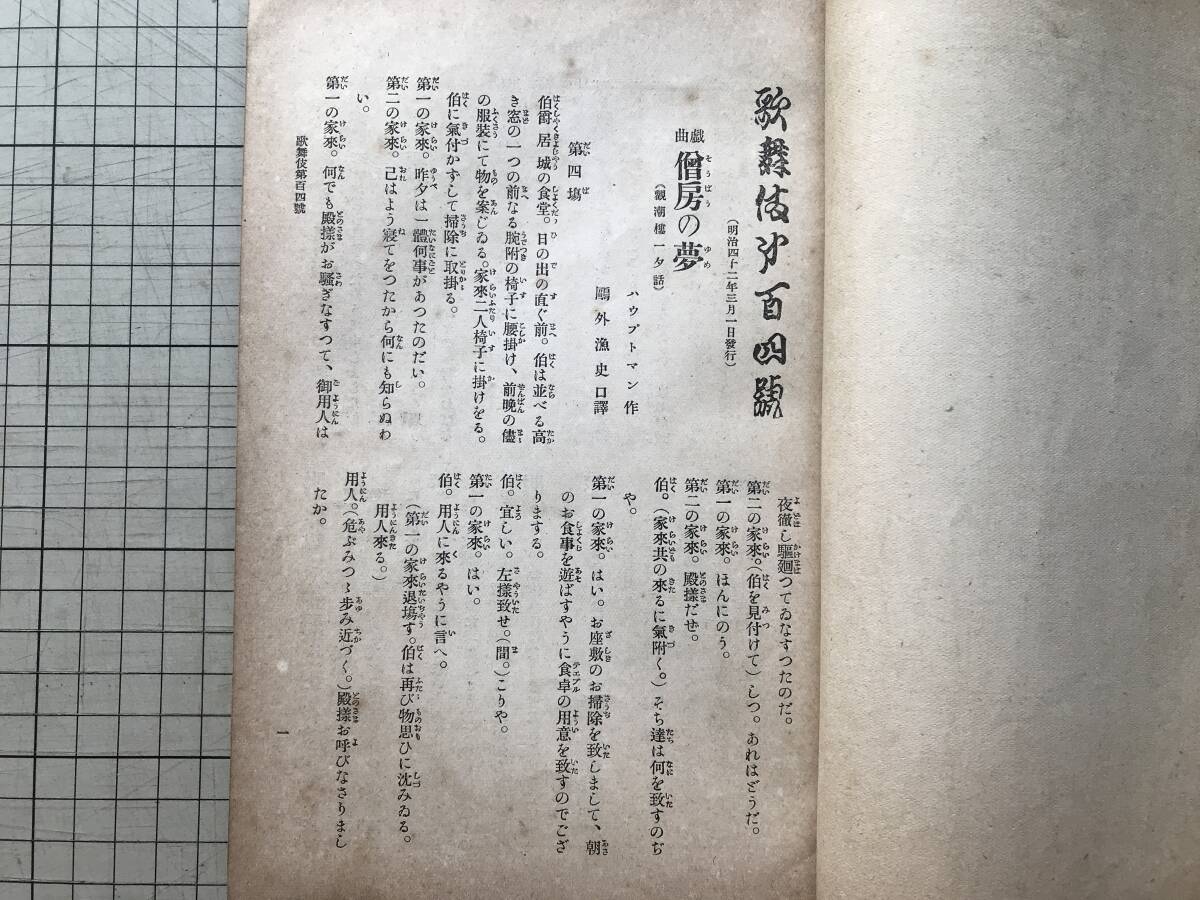 歌舞伎第百四號
(明治四十二年三月一日發行)
戲曲 僧房の夢
(觀潮樓一夕話)
ハウプトマン作
鷗外漁史口譯
第四塲
伯爵居城の食堂。日の出の直ぐ前。伯は並べる高
き窓の一つの前なる腕附の椅子に腰掛け、前晩の儘
の服裝にて物を案じゐる。家來二人椅子に掛けをる。
伯に氣付かずして掃除に取掛る。
第一の家來。昨夕は一體何事があつたのだい。
第二の家來。己はよう寢てをつたから何にも知らぬわ
い。
第一の家來。何でも殿樣がお騷ぎなすつて、御用人は
歌舞伎第百四號
夜徹し驅廻つてゐなすつたのだ。
第二の家來。(伯を見付けて)しつ。あれはどうだ。
第一の家來。ほんにのう。
第二の家來。殿樣だせ。
伯。(家來共の來るに氣附く。)そち達は何を致すのぢ
や。
第一の家來。はい。お座敷のお掃除を致しまして、朝
のお食事を遊ばすやうに食卓の用意を致すのでござ
りまする。
伯。宜しい。左樣致せ。(間。)こりや。
第一の家來。はい。
伯。用人に來るやうに言へ。
(第一の家來退塲す。伯は再び物思ひに沈みゐる。
用人來る。)
用人。(危ぶみつゝ步み近づく。)殿樣お呼びなさりまし
たか。
一